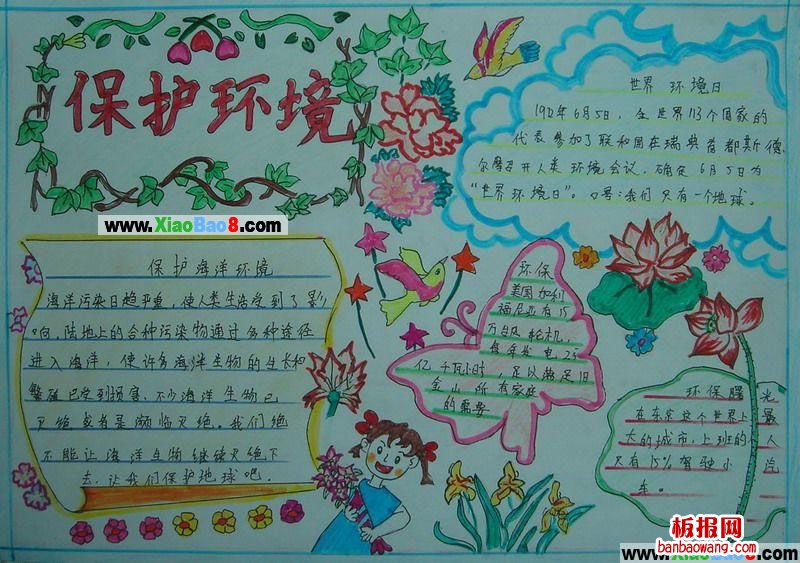 保护环境
www.XiaoBao8.com
世界环境日
1972年6月5日，在世界113个国家的
代表参加了联和国在瑞典首都斯德
尔摩召开人类环境会议。确定6月5日为
“世界环境日”。口号：我们只有一个地球。
保护海洋环境
海洋污染日趋严重，使人类生活受到了影
响，陆地上的各种污染物通过多种途径
进入海洋，使许多海洋生物的生长和
繁殖已受到损害，不少海洋生物已
灭绝或者是濒临灭绝。我们绝
不能让海洋生物继续灭绝下
去，让我们保护地球吧。
环保
美国加利
福尼亚有15
万台风轮机，
每年发电25
亿千瓦小时，足以满足旧
金山所有家庭
的需要
环保曙光
在东京这个世界上最
大的城市，上班的人
只有15%驾驶小汽
车。
www.XiaoBao8.com
板报网
banbaowang.com
www.XiaoBao8.com